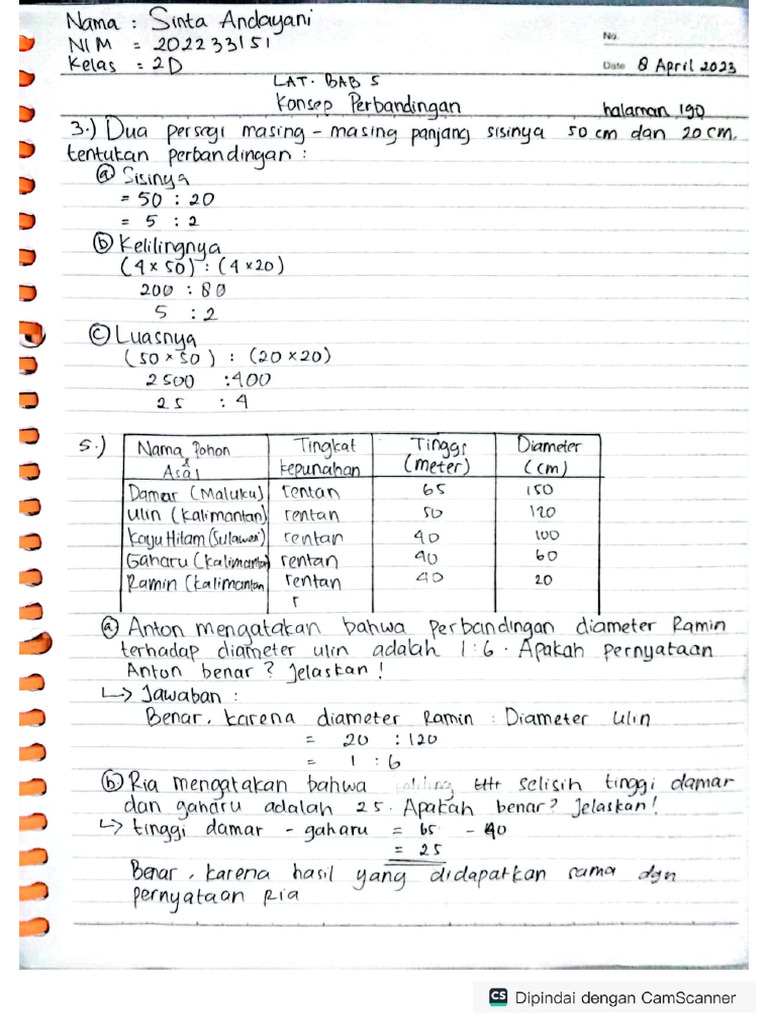 Nama : Sinta Andayani
NIM = 202233151
No.
Kelas : 2D
Date 8 April 2023
LAT. BAB 5
Konsep Perbandingan
halaman 190
3.) Dua persegi masing - masing panjang sisinya 50 cm dan 20 cm.
tentukan perbandingan :
(a) Sisinya
= 50 : 20
= 5 : 2
(b) Kelilingnya
(4 x 50) : (4 x 20)
200 : 80
5 : 2
(c) Luasnya
(50 x 50) : (20 x 20)
2500 : 400
25 : 4
5.) Nama Pohon & Asal Tingkat kepunahan Tinggi (meter) Diameter (cm)
Damar (Maluku) rentan 65 150
Ulin (Kalimantan) rentan 50 120
Kayu Hitam (Sulawesi) rentan 40 100
Gaharu (Kalimantan) rentan 40 60
Ramin (Kalimantan rentan 40 20
r
(a) Anton mengatakan bahwa perbandingan diameter Ramin
terhadap diameter ulin adalah 1:6. Apakah pernyataan
Anton benar? Jelaskan!
↳ Jawaban :
Benar, karena diameter Ramin : Diameter Ulin
= 20 : 120
= 1 : 6
(b) Ria mengatakan bahwa selisih tinggi damar
dan gaharu adalah 25. Apakah benar? Jelaskan!
↳ tinggi damar - gaharu = 65 - 40
= 25
Benar, karena hasil yang didapatkan sama dgn
pernyataan Ria
CS Dipindai dengan CamScanner